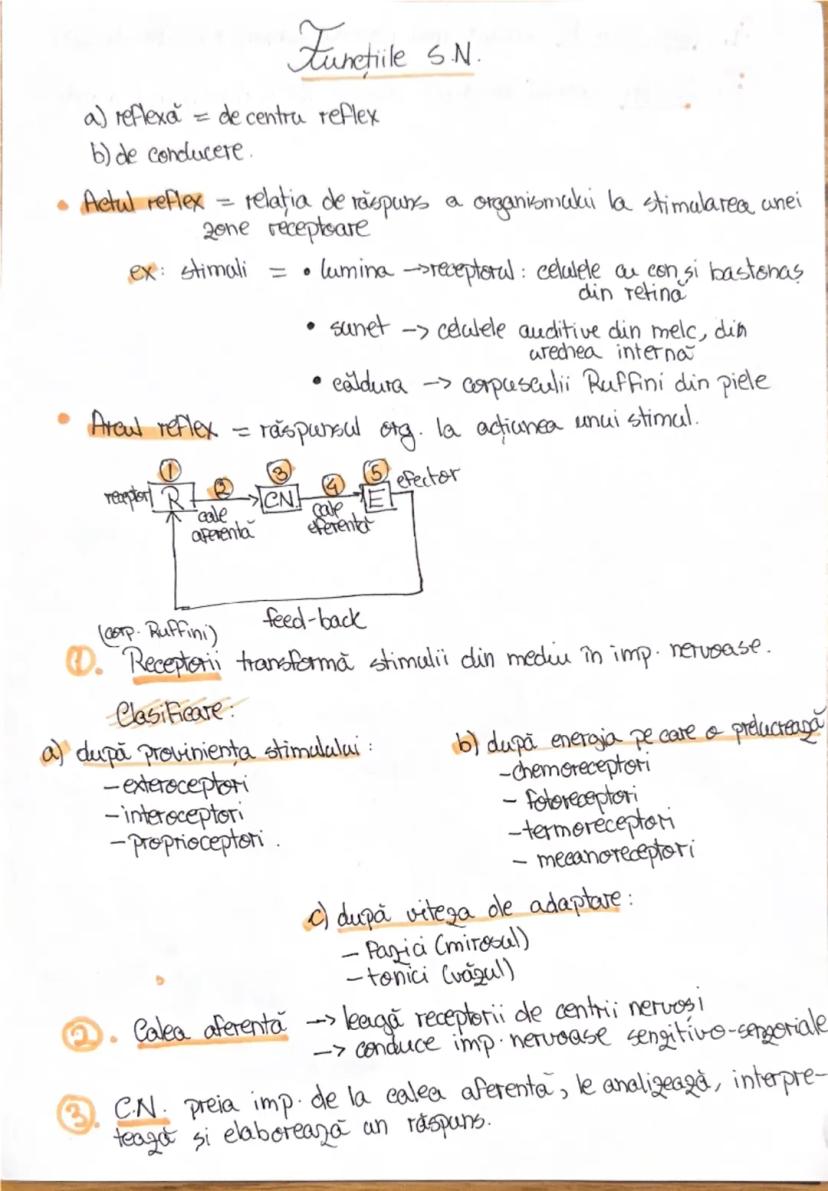 Funcțiile S.N.
a) reflexă = de centru reflex
b) de conducere.
• Actul reflex = relația de răspuns a organismului la stimularea unei
zone receptoare
ex: stimali = • lumina →receptorul: celulele cu con și bastonaș
din retină
• sunet → celulele auditive din melc, din
urechea internă
• căldura → corpusculii Ruffini din piele
• Arcul reflex = răspunsul org. la acțiunea unui stimul.
1 2 3 4 5
receptor R CN E efector
cale aferentă
cale eferentă
feed-back
(corp. Ruffini)
1. Receptorii transformă stimulii din mediu în imp. nervoase.
Clasificare:
a) după proviniența stimulului:
– exteroceptori
– interoceptori
– proprioceptori.
b) după energia pe care o prelucrează
– chemoreceptori
– fotoreceptori
– termoreceptori
– mecanoreceptori
c) după viteza de adaptare:
– fazici (mirosul)
– tonici (văzul)
2. Calea aferentă → leagă receptorii de centrii nervoși
→ conduce imp. nervoase senzitivo-senzoriale
3. C.N. preia imp. de la calea aferentă, le analizează, interpre-
tează și elaborează un răspuns.